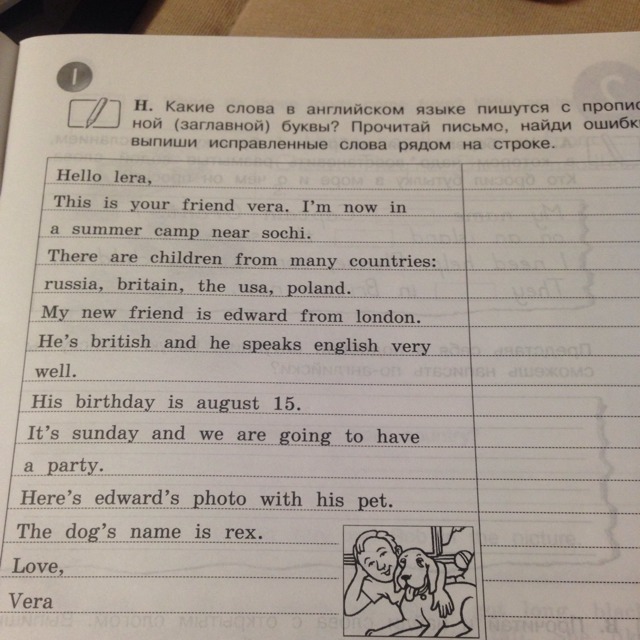 I
H. Какие слова в английском языке пишутся с пропис
ной (заглавной) буквы? Прочитай письмо, найди ошибк
выпиши исправленные слова рядом на строке.
Hello lera,
This is your friend vera. I'm now in
a summer camp near sochi.
There are children from many countries:
russia, britain, the usa, poland.
My new friend is edward from london.
He's british and he speaks english very
well.
His birthday is august 15.
It's sunday and we are going to have
a party.
Here's edward's photo with his pet.
The dog's name is rex.
Love,
Vera